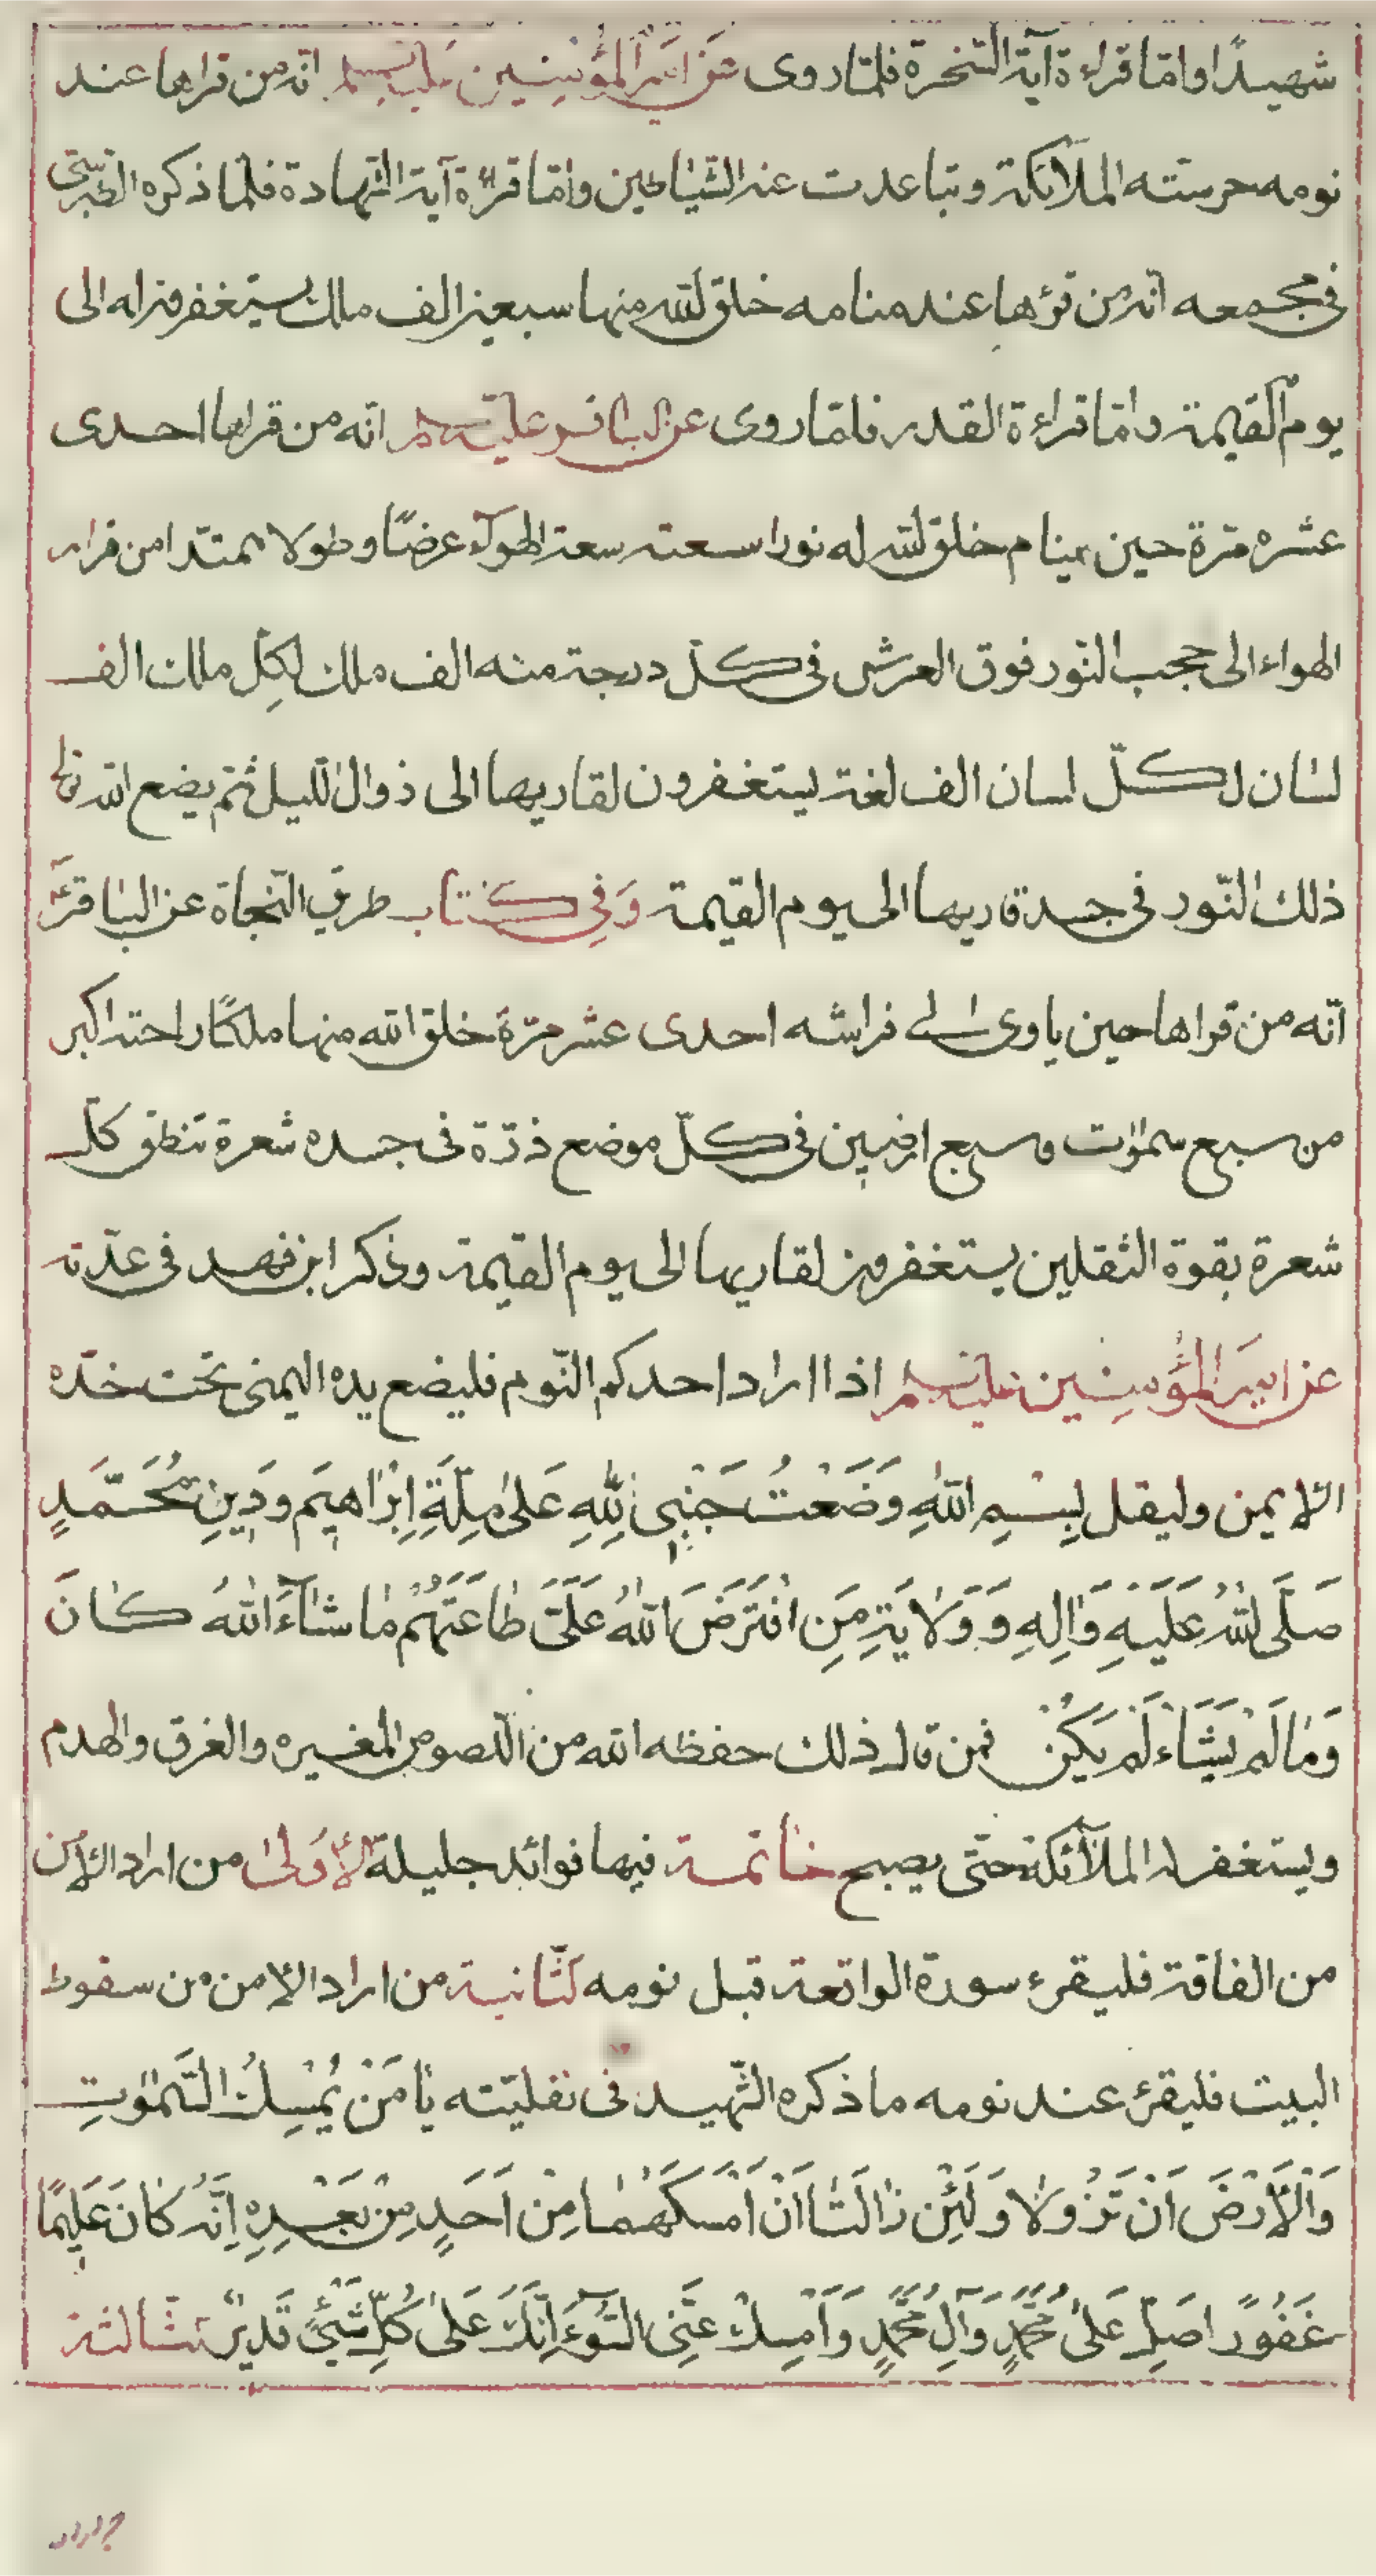 شهيدًا واما قراءة آية السّخرة فلمّا روى عَن اَميرَ المؤمِنِين عليه السلم انّه من قراها عند
نومه حرسته الملآئكة وتباعدت عنه الشّياطين وامّا قرائة آية الشّهادة فلما ذكره الطّبرسّى
فى مجمعه انّه من قرؤها عند منامه خلق الله منها سبعين الف ملك يستغفرون له الى
يوم القيٰمة وامّا قراءة القدر فلمّا روى عن الباقر عليه السلم انّه من قراها احدى
عشره مرّة حين ينام خلق الله له نورا سعته سعة الهوآء عرضًا وطولا ممتدّا من قرار
الهواء الى حجب النّور فوق العرش فى كلّ درجة منه الف ملك لكلِّ ملك الف
لسٰان لكلّ لسان الف لغة يستغفرون لقاريها الى زوال اللّيل ثمّ يضع الله تعالى
ذلك النّور فى جسد قاريها الى يوم القيٰمة وَفِى كتاب طريق النّجاة عن البٰاقرؑ
انّه من قراها حين ياوى الى فراشه احدى عشر مرّة خلق الله منها ملكًا راحته اكبر
من سبع سمٰوٰت وسبع ارضين فى كلّ موضع ذرّة فى جسده شعرة تنطق كلّ
شعرة بقوة الثقلين يستغفرون لقاريها الى يوم القيٰمة وذكر ابن فهد فى عدّته
عن اميرَ المؤمِنِين عليه السلم اذا اراد احدكم النّوم فليضع يده اليمنى تحت خدّه
الايمن وليقل بِسْمِ اللهِ وَضَعْتُ جَنْبِى لِلّٰهِ عَلىٰ مِلَّةِ اِبْرٰاهيٖمَ وَدِينِ مُحَمَّدٍ
صَلَّى اللهُ عَلَيْهِ وَاٰلِهِ وَوَلٰايَةِ مَنِ افْتَرَضَ اللهُ عَلَىَّ طٰاعَتَهُمْ مٰا شٰآءَ اللهُ كٰانَ
وَمٰا لَمْ يَشَاء لَمْ يَكُنْ فمن قال ذلك حفظه الله من اللّصوص المغيره والغرق والهدم
ويستغفر له الملآئكة حتّى يصبح خٰاتمة فيها فوائد جليلة الأوّلىٰ من اراد الامن
من الفاقة فليقرء سورة الواقعة قبل نومه الثّانية من اراد الامن من سقوط
البيت فليقرء عند نومه ما ذكره الشّهيد فى نفليّته يٰا مَنْ يُمْسِكُ السَّمٰوٰتِ
وَالْاَرْضَ اَنْ تَزُولٰا وَلَئِنْ زٰالَتٰا اَنْ اَمْسَكَهُمٰا مِنْ اَحَدٍ مِنْ بَعْدِهِ اِنَّهُ كٰانَ عَليٖمًا
غَفُورًا صَلِّ عَلىٰ مُحَمَّدٍ وَآلِ مُحَمَّدٍ وَاَمْسِكْ عَنِّى السُّوٓءَ اِنَّكَ عَلىٰ كُلِّ شَيْئٍ قَديٖرٌ الثّالثة